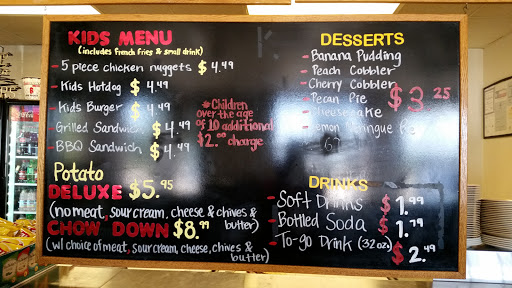 KIDS MENU
(includes french fries & small drink)
- 5 piece chicken nuggets $4.49
- Kids Hotdog $4.49
- Kids Burger $4.49
- Grilled Sandwich $4.49
- BBQ Sandwich $4.49
* Children
over the age
of 10 additional
$2.00 charge
Potato
DELUXE $5.95
(no meat, sour cream, cheese & chives & butter)
CHOW DOWN $8.99
(w/ choice of meat, sour cream, cheese, chives & butter)
DESSERTS
- Banana Pudding
- Peach Cobbler
- Cherry Cobbler
- Pecan Pie
- Cheesecake
- Lemon Meringue
$3.25
DRINKS
- Soft Drinks $1.99
- Bottled Soda $1.79
- To-go Drink (32oz) $2.49